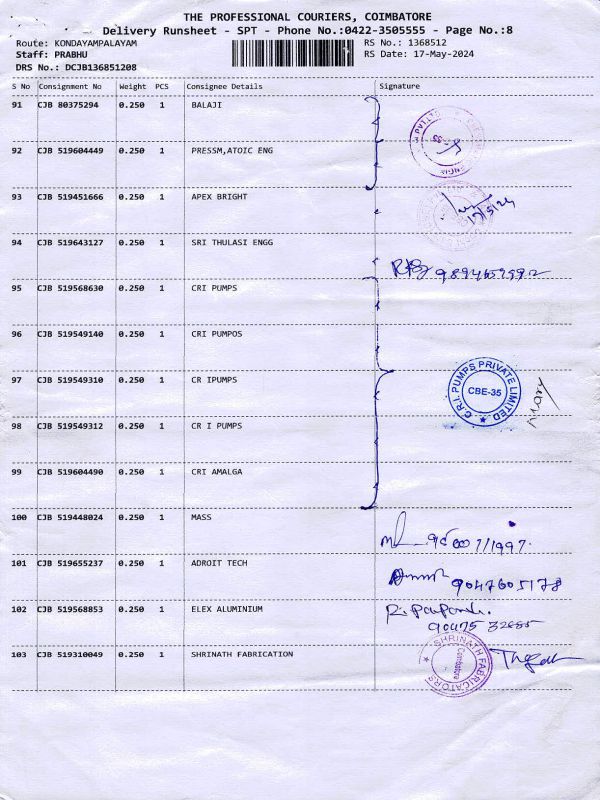 THE PROFESSIONAL COURIERS, COIMBATORE
Delivery Runsheet - SPT - Phone No.:0422-3505555 - Page No.:8
Route: KONDAYAMPALAYAM RS No.: 1368512
Staff: PRABHU RS Date: 17-May-2024
DRS No.: DCJB136851208
S No Consignment No Weight PCS Consignee Details Signature
91 CJB 80375294 0.250 1 BALAJI
92 CJB 519604449 0.250 1 PRESSM,ATOIC ENG
93 CJB 519451666 0.250 1 APEX BRIGHT
17/5/24
94 CJB 519643127 0.250 1 SRI THULASI ENGG
95 CJB 519568630 0.250 1 CRI PUMPS
96 CJB 519549140 0.250 1 CRI PUMPOS
97 CJB 519549310 0.250 1 CR IPUMPS
C.R.I. PUMPS PRIVATE LIMITED
CBE-35
98 CJB 519549312 0.250 1 CR I PUMPS
99 CJB 519604490 0.250 1 CRI AMALGA
100 CJB 519448024 0.250 1 MASS
101 CJB 519655237 0.250 1 ADROIT TECH
9047605178
102 CJB 519568853 0.250 1 ELEX ALUMINIUM
103 CJB 519310049 0.250 1 SHRINATH FABRICATION
SHRINATH FABRICATORS
Coimbatore